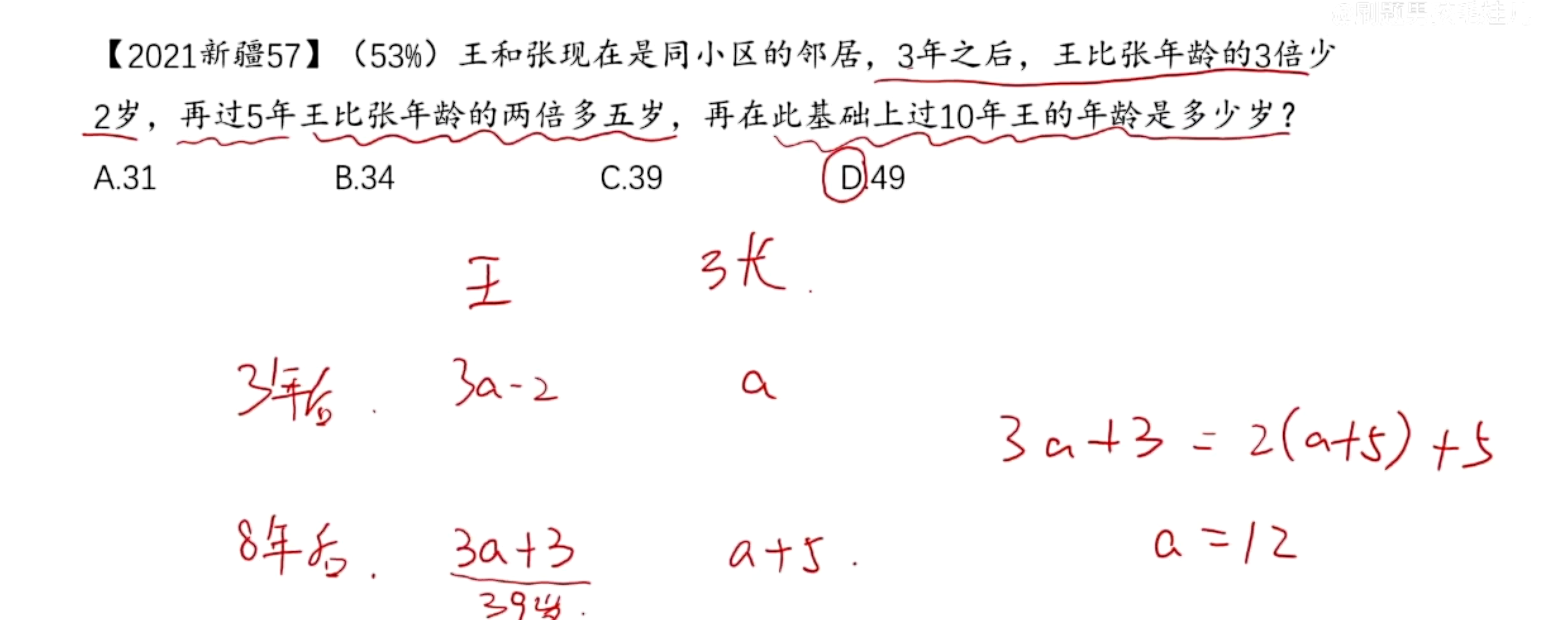 【2021新疆57】（53%）王和张现在是同小区的邻居，3年之后，王比张年龄的3倍少
2岁，再过5年王比张年龄的两倍多五岁，再在此基础上过10年王的年龄是多少岁？
A.31 B.34 C.39 D.49
王 张.
3年后. 3a-2 a
3a+3=2(a+5)+5
8年后. 3a+3 a+5. a=12
39岁.